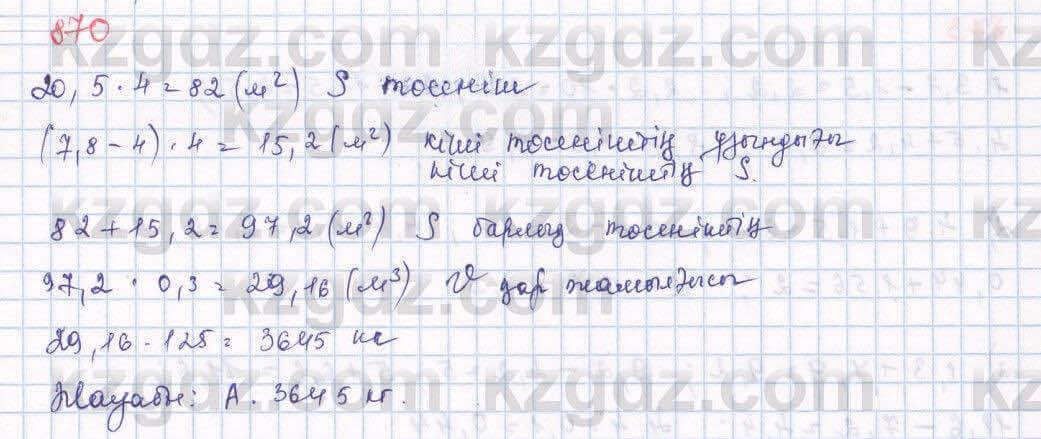 870
20,5 · 4 = 82 (м²) S төсеніш
(7,8 - 4) · 4 = 15,2 (м²) кіші төсеніштің ұзындығы
кіші төсеніштің S.
82 + 15,2 = 97,2 (м²) S барлық төсеніштің
97,2 · 0,3 = 29,16 (м³) V қар жамылғысы
29,16 · 125 = 3645 кг
Жауабы: А. 3645 кг.
kzgdz.com